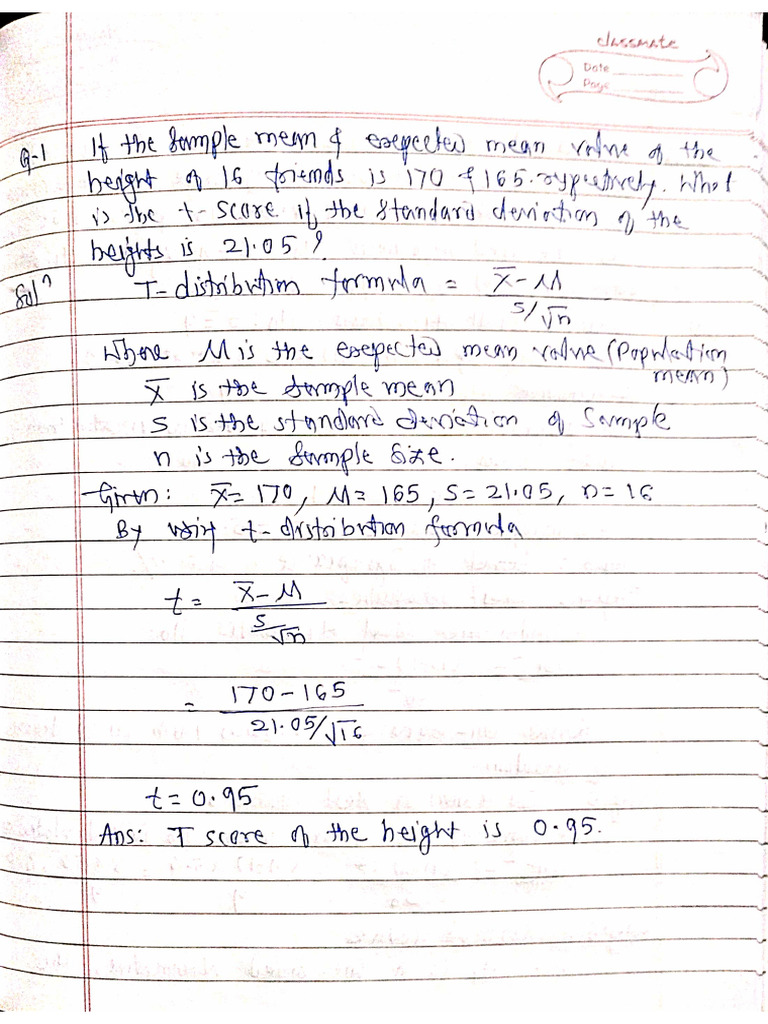 classmate
Date
Page
Q-1 If the Sample mean & exepected mean value of the
height of 16 friends is 170 & 165 respectively. What
is the t-score if the standard deviation of the
heights is 21.05?
Solⁿ T-distribution formula = x̄-M / S/√n
Where M is the exepected mean value (Population
mean)
x̄ is the sample mean
S is the standard deviation of Sample
n is the sample size.
Given: x̄=170, M=165, S=21.05, n=16
By using t-distribution formula
t = x̄-M
S/√n
= 170-165
21.05/√16
t=0.95
Ans: T score of the height is 0.95.